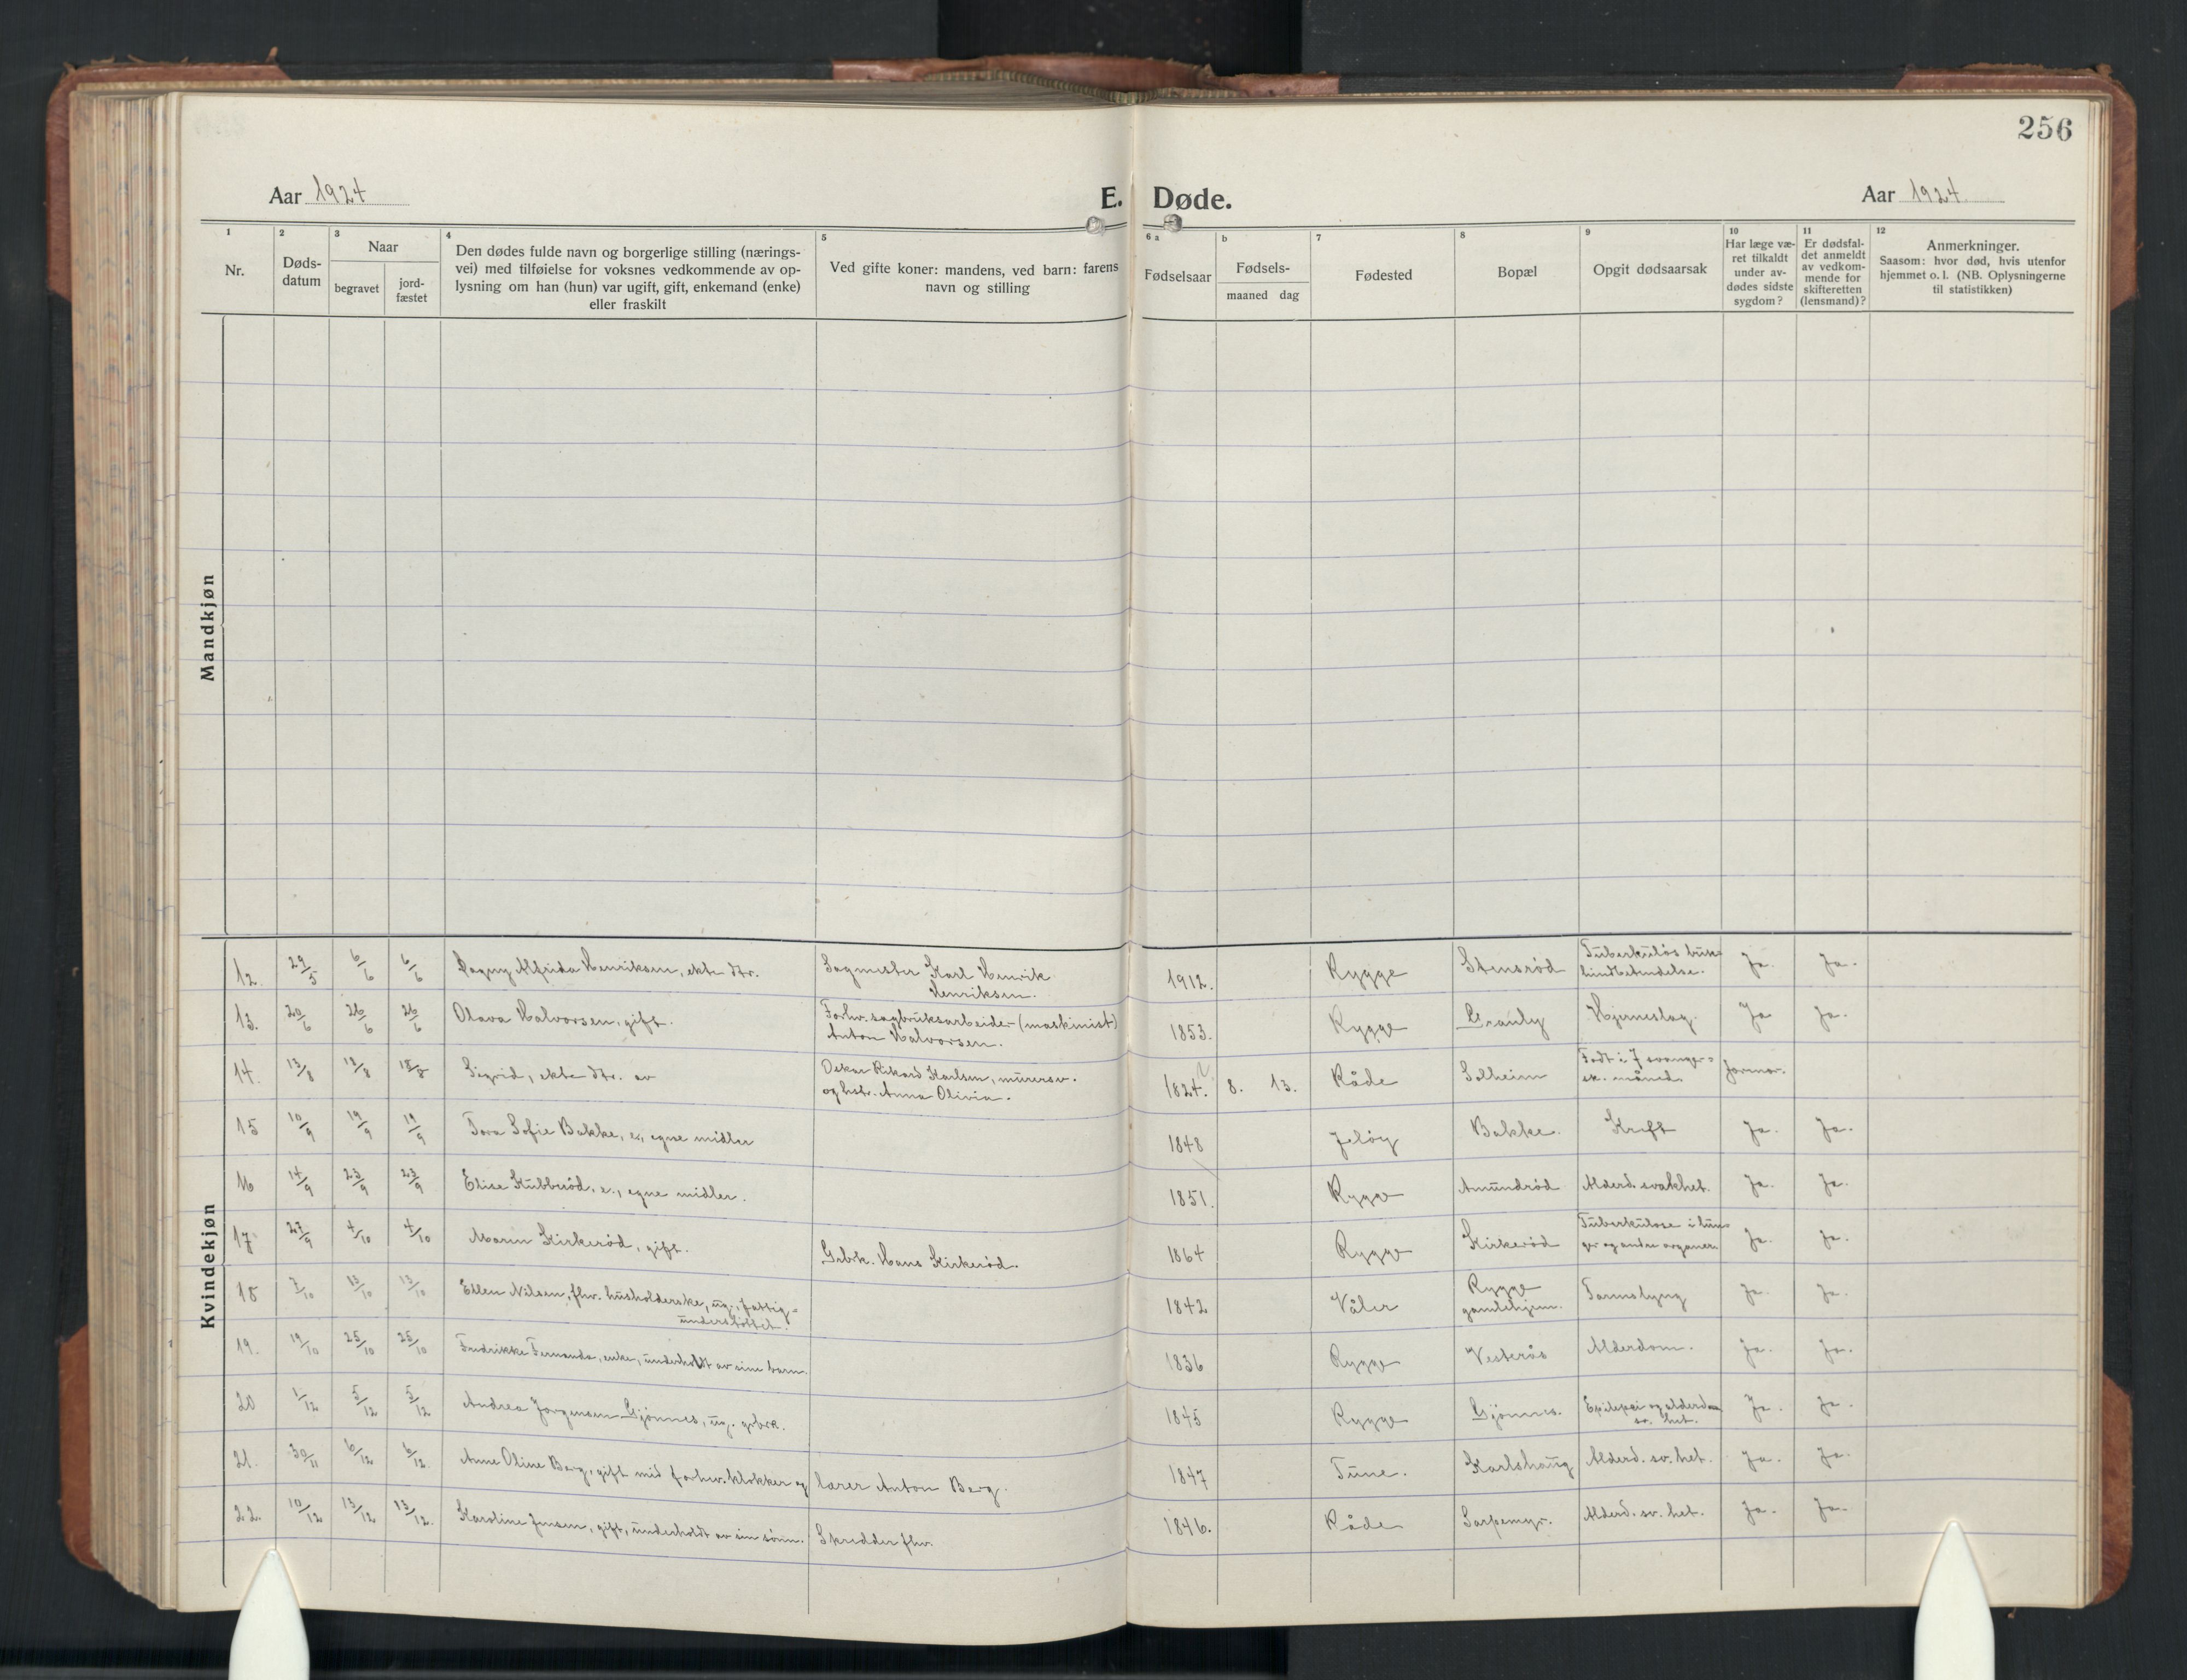 256
Aar 1924
E. Døde.
Aar 1924
1 2 3 4 5 6 a b 7 8 9 10 11 12
Nr.
Døds-
datum
Naar
begravet
jord-
fæstet
Den dødes fulde navn og borgerlige stilling (nærings-
vei) med tilføielse for voksnes vedkommende av op-
lysning om han (hun) var ugift, gift, enkemand (enke)
eller fraskilt
Ved gifte koner: mandens, ved barn: farens
navn og stilling
Fødselsaar
Fødsels-
maaned dag
Fødested
Bopæl
Opgit dødsaarsak
Har læge væ-
ret tilkaldt
under av-
dødes sidste
sygdom?
Er dødsfal-
det anmeldt
av vedkom-
mende for
skifteretten
(lensmand)?
Anmerkninger.
Saasom: hvor død, hvis utenfor
hjemmet o. l. (NB. Oplysningerne
til statistikken)
Mandkjøn
Kvindekjøn
12. 29/5 6/6 6/6 Dagny Alfrida Henriksen, ekte dtr. Sagmester Karl Henrik
Henriksen. 1912. Rygge Stensrød Tuberkuløs buk-
hindbetendelse. Ja. Ja.
13. 20/6 26/6 26/6 Olava Halvorsen, gift. Forhv. sagbruksarbeider (maskinist)
Anton Halvorsen. 1853. Rygge Granly Hjerneslag. Ja Ja.
14. 13/8 18/8 18/8 Sigrid, ekte dtr. av Oskar Rikard Karlsen, murersv.
og hstr. Anna Olivia. 1824. 8. 13. Råde Solheim Født i 7 svanger-
sk. måned. Jormor.
15 10/9 19/9 19/9 Tora Sofie Bakke, e., egne midler 1848 Jeløy Bakke. Kreft Ja. Ja.
16 14/9 23/9 23/9 Elise Kubberød, e., egne midler. 1851. Rygge Amundrød Alderd. svakhet. Ja. Ja.
17 27/9 4/10 4/10 Maren Kirkerød, gift. Grbr. Hans Kirkerød. 1864 Rygge Kirkerød Tuberkulose i lun-
ger og andre organer Ja. Ja.
18 7/10 13/10 13/10 Ellen Nilsen, fhv. husholderske, ug., fattig-
understøttet. 1842 Våler Rygge
gamlehjem. Tarmslyng Ja. Ja.
19. 19/10 25/10 25/10 Fredrikke Fernanda, enke, underholdt av sine barn. 1836 Rygge Vesterås Alderdom. Ja. Ja.
20 1/12 5/12 5/12 Andrea Jørgensen Gjønnes, ug. grbr. 1845 Rygge Gjønnes. Epilepsi og alderdom
sv. het. Ja. Ja.
21. 30/11 6/12 6/12 Anne Oline Berg, gift med forhv. klokker og lærer Anton Berg. 1847 Tune. Karlshaug Alderd. sv. het. Ja. Ja.
22. 10/12 13/12 13/12. Karoline Jensen, gift, underholdt av sin sønn. Skredder fhv. 1846. Råde Sarpemyr. Alderd. sv. het. Ja. Ja.